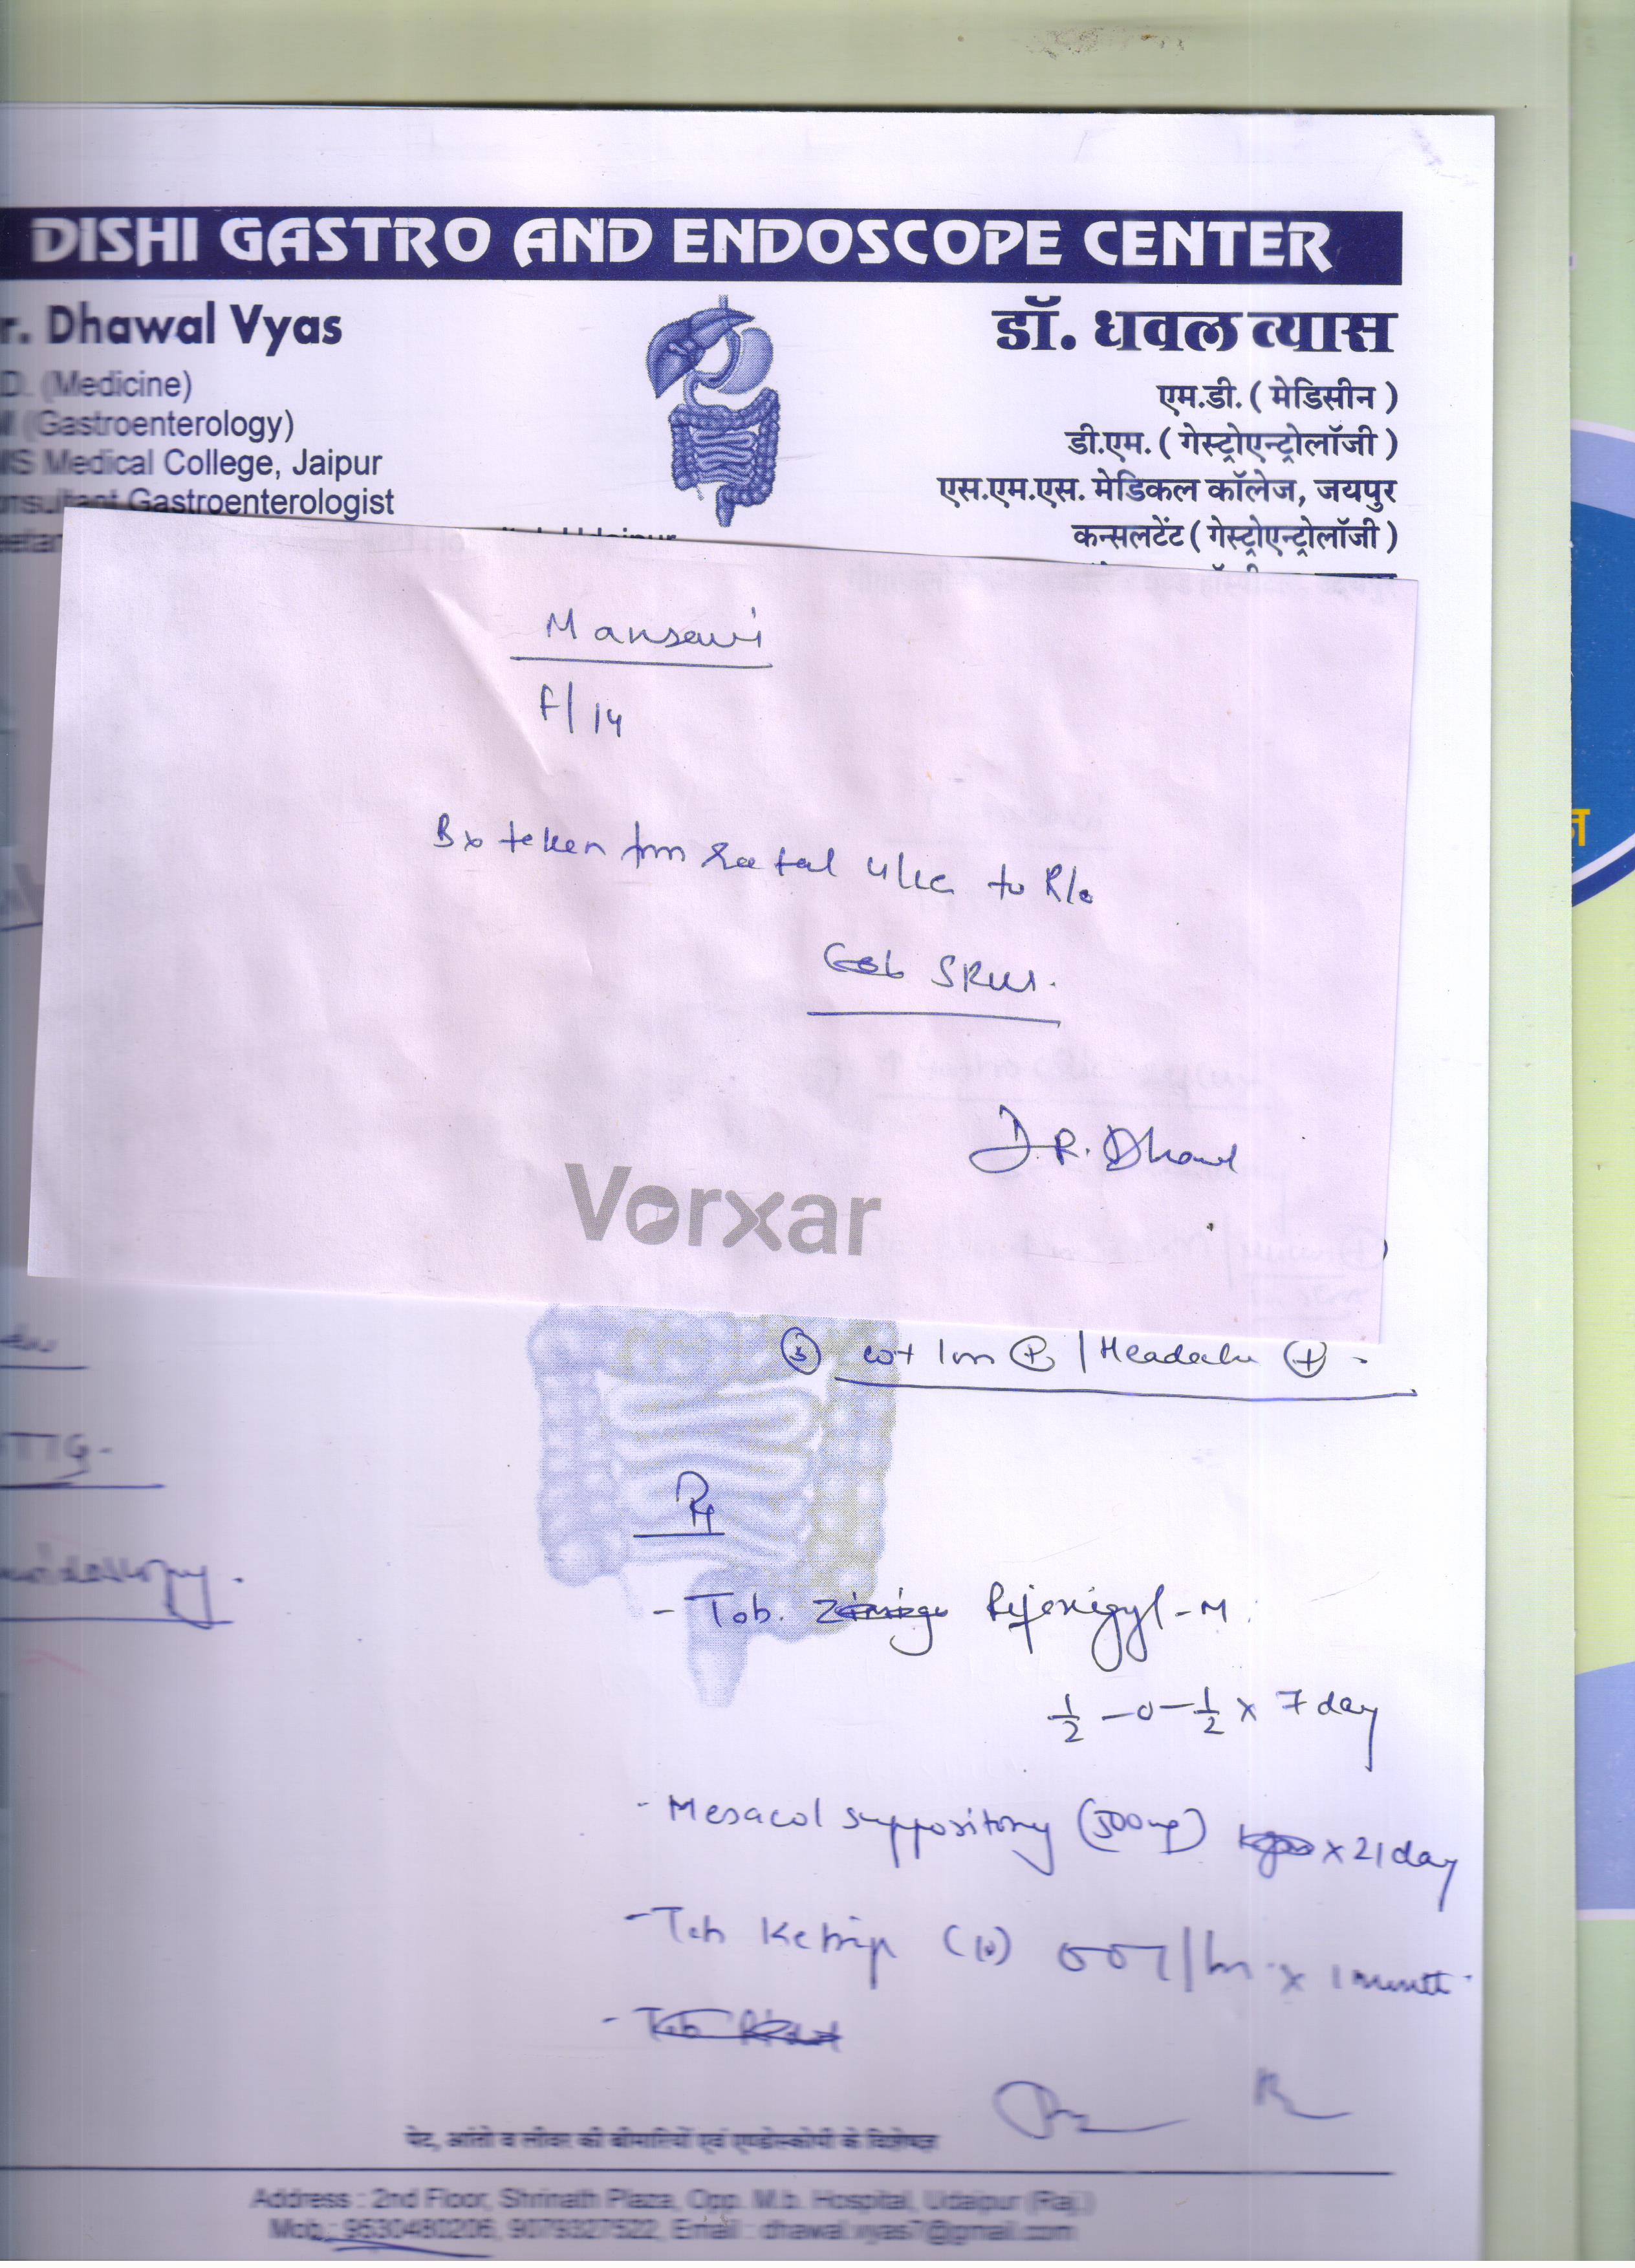 DISHI GASTRO AND ENDOSCOPE CENTER
r. Dhawal Vyas
D. (Medicine)
M (Gastroenterology)
MS Medical College, Jaipur
onsultant Gastroenterologist
डॉ. धवल व्यास
एम.डी. ( मेडिसीन )
डी.एम. ( गेस्ट्रोएन्ट्रोलॉजी )
एस.एम.एस. मेडिकल कॉलेज, जयपुर
कन्सलटेंट ( गेस्ट्रोएन्ट्रोलॉजी )
Mansavi
F/14
Bx taken from to R/o
SRUS.
DR. Dhawal
Vorxar
③ wt loss ⊕ | Headache ⊕ -
TTG-
Rx
- Tab. Rifexigyl-M
½ -0- ½ x 7 day
- Mesacol suppository (500mg) x 21 day
- Tab (10) x 1 month
पेट, आंतो व लीवर की बीमारियों एवं एण्डोस्कोपी के विशेषज्ञ
Address : 2nd Floor, Shrinath Plaza, Opp. M.b. Hospital, Udaipur (Raj.)
Mob.: 9530480206, 9079327522, Email : dhawal.vyas7@gmail.com